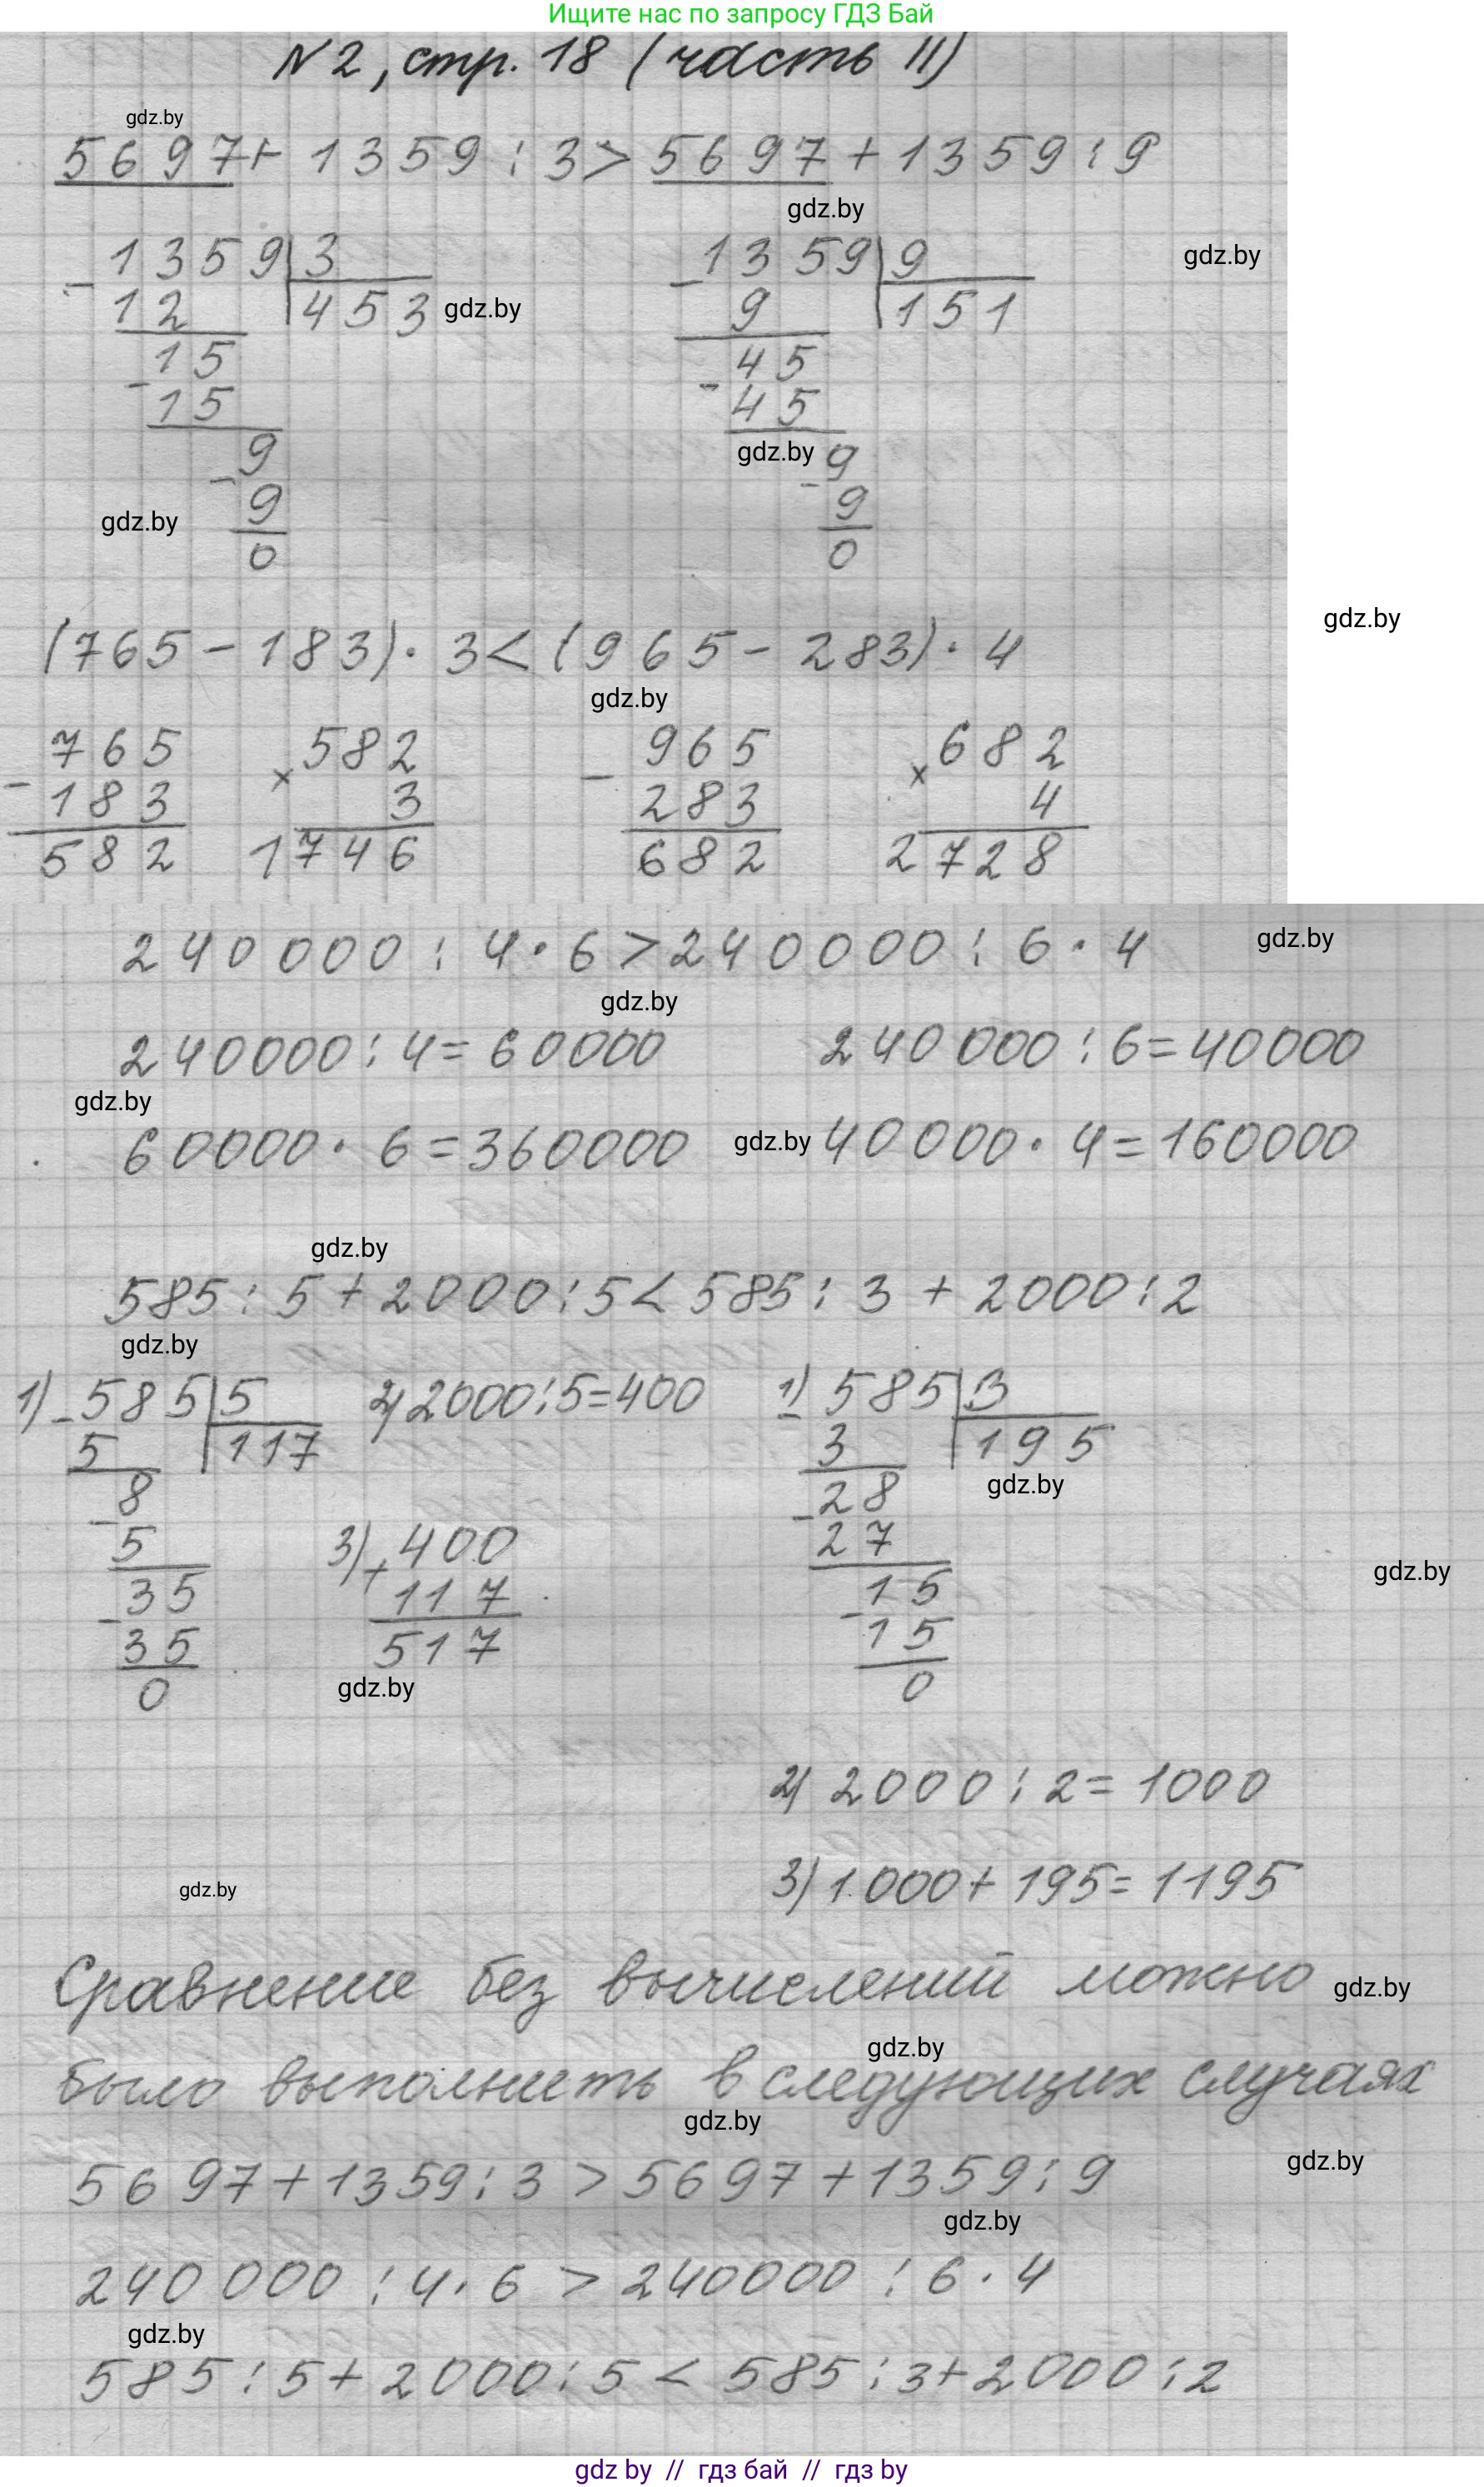 Ищите нас по запросу ГДЗ Бай
N2, стр. 18 (часть II)
gdz.by
5697 + 1359 : 3 > 5697 + 1359 : 9
gdz.by
1359 | 3 1359 | 9 gdz.by
- 12 453 gdz.by - 9 151
15 45
- 15 - 45
9 gdz.by 9
- 9 - 9
gdz.by
0 0
gdz.by
(765 - 183) · 3 < (965 - 283) · 4
gdz.by
765 582 965 682
- 183 × 3 - 283 × 4
582 1746 682 2728
240000 : 4 · 6 > 240000 : 6 · 4 gdz.by
gdz.by
240000 : 4 = 60000 240000 : 6 = 40000
gdz.by
60000 · 6 = 360000 gdz.by 40000 · 4 = 160000
gdz.by
585 : 5 + 2000 : 5 < 585 : 3 + 2000 : 2
gdz.by
1) - 585 | 5 2) 2000 : 5 = 400 1) - 585 | 3
5 117 3 195
8 28 gdz.by
- 5 3) + 400 - 27
35 117 15 gdz.by
- 35 517 - 15
0 gdz.by 0
2) 2000 : 2 = 1000
3) 1000 + 195 = 1195
gdz.by
Сравнение без вычислений можно gdz.by
gdz.by
было выполнить в следующих случаях
gdz.by
5697 + 1359 : 3 > 5697 + 1359 : 9 gdz.by
gdz.by
240000 : 4 · 6 > 240000 : 6 · 4
gdz.by
585 : 5 + 2000 : 5 < 585 : 3 + 2000 : 2
gdz by // гдз бай // гдз by